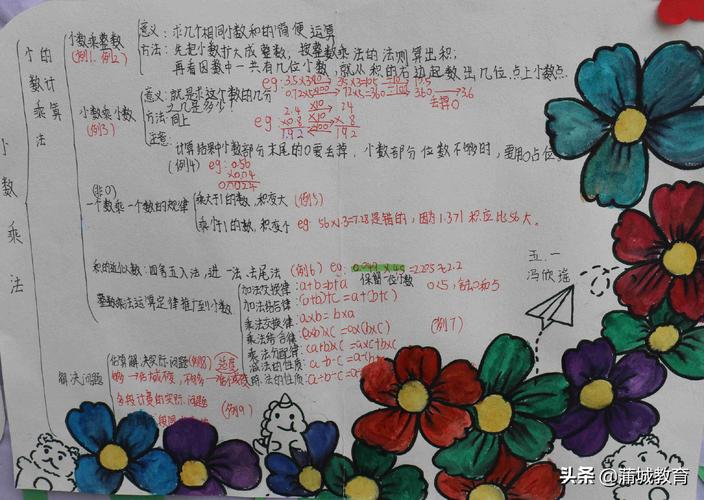 小数乘法
小数的乘法计算
小数乘整数
(例1. 例2)
意义：求几个相同小数和的简便运算
方法：先把小数扩大成整数，按整数乘法的法则算出积，
再看因数中一共有几位小数，就从积的右边起数出几位，点上小数点.
小数乘小数
(例3)
意义：就是求这个数的几分之几是多少？
eg: 0.72×5 72×5=360 360 3.6
去掉0
方法：同上
eg
2.4 ×10 24
×0.8 ×10 × 8
1.92 ÷100 192
注意：
计算结果中小数部分末尾的0要去掉，小数部分位数不够的，要用0占位
(例4) eg: 0.56
×0.04
0.0224
(非0)
一个数乘一个数的规律
乘大于1的数，积变大 (例5)
乘小于1的数，积变小 eg: 56×1.3=7.28是错的，因为1.3>1 积应比56大。
积的近似数：四舍五入法，进一法，去尾法 (例6) eg:
保留一位小数
整数乘法运算定律推广到小数
加法交换律：a+b=b+a
加法结合律：(a+b)+c=a+(b+c)
乘法交换律：a×b=b×a
乘法结合律：(a×b)×c=a×(b×c) (例7)
乘法分配律：
减法的性质：a-b-c=a-(b
除法的性质：
解决问题
估算解决实际问题 (例8)
分段计费的实际问题
(例9)
五.一
冯欣瑶
头条 @蒲城教育